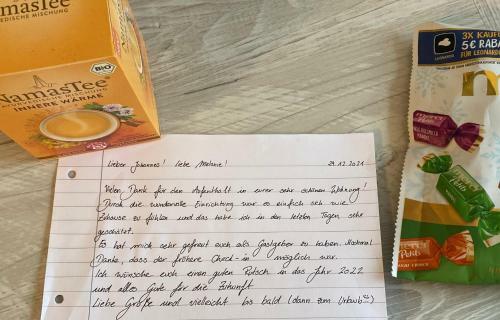 NamasTee
AYURVEDISCHE MISCHUNG
NamasTee
AYURVEDISCHE MISCHUNG
INNERE WÄRME
BIO
3X KAUFEN
5€ RABA
FÜR LEONARD
LEONARDO
merci
Petits
Petits
merci
Petits
Lieber Johannes! Liebe Melanie! 29.12.2021
Vielen Dank für den Aufenthalt in eurer sehr schönen Wohnung!
Durch die wundervolle Einrichtung war es einfach sich wie
Zuhause zu fühlen und das habe ich in den letzten Tagen sehr
geschätzt.
Es hat mich sehr gefreut euch als Gastgeber zu haben. Nochmal
Danke, dass der frühere Check-in möglich war.
Ich wünsche euch einen guten Rutsch in das Jahr 2022
und alles Gute für die Zukunft
Liebe Grüße und vielleicht bis bald (dann zum Urlaub